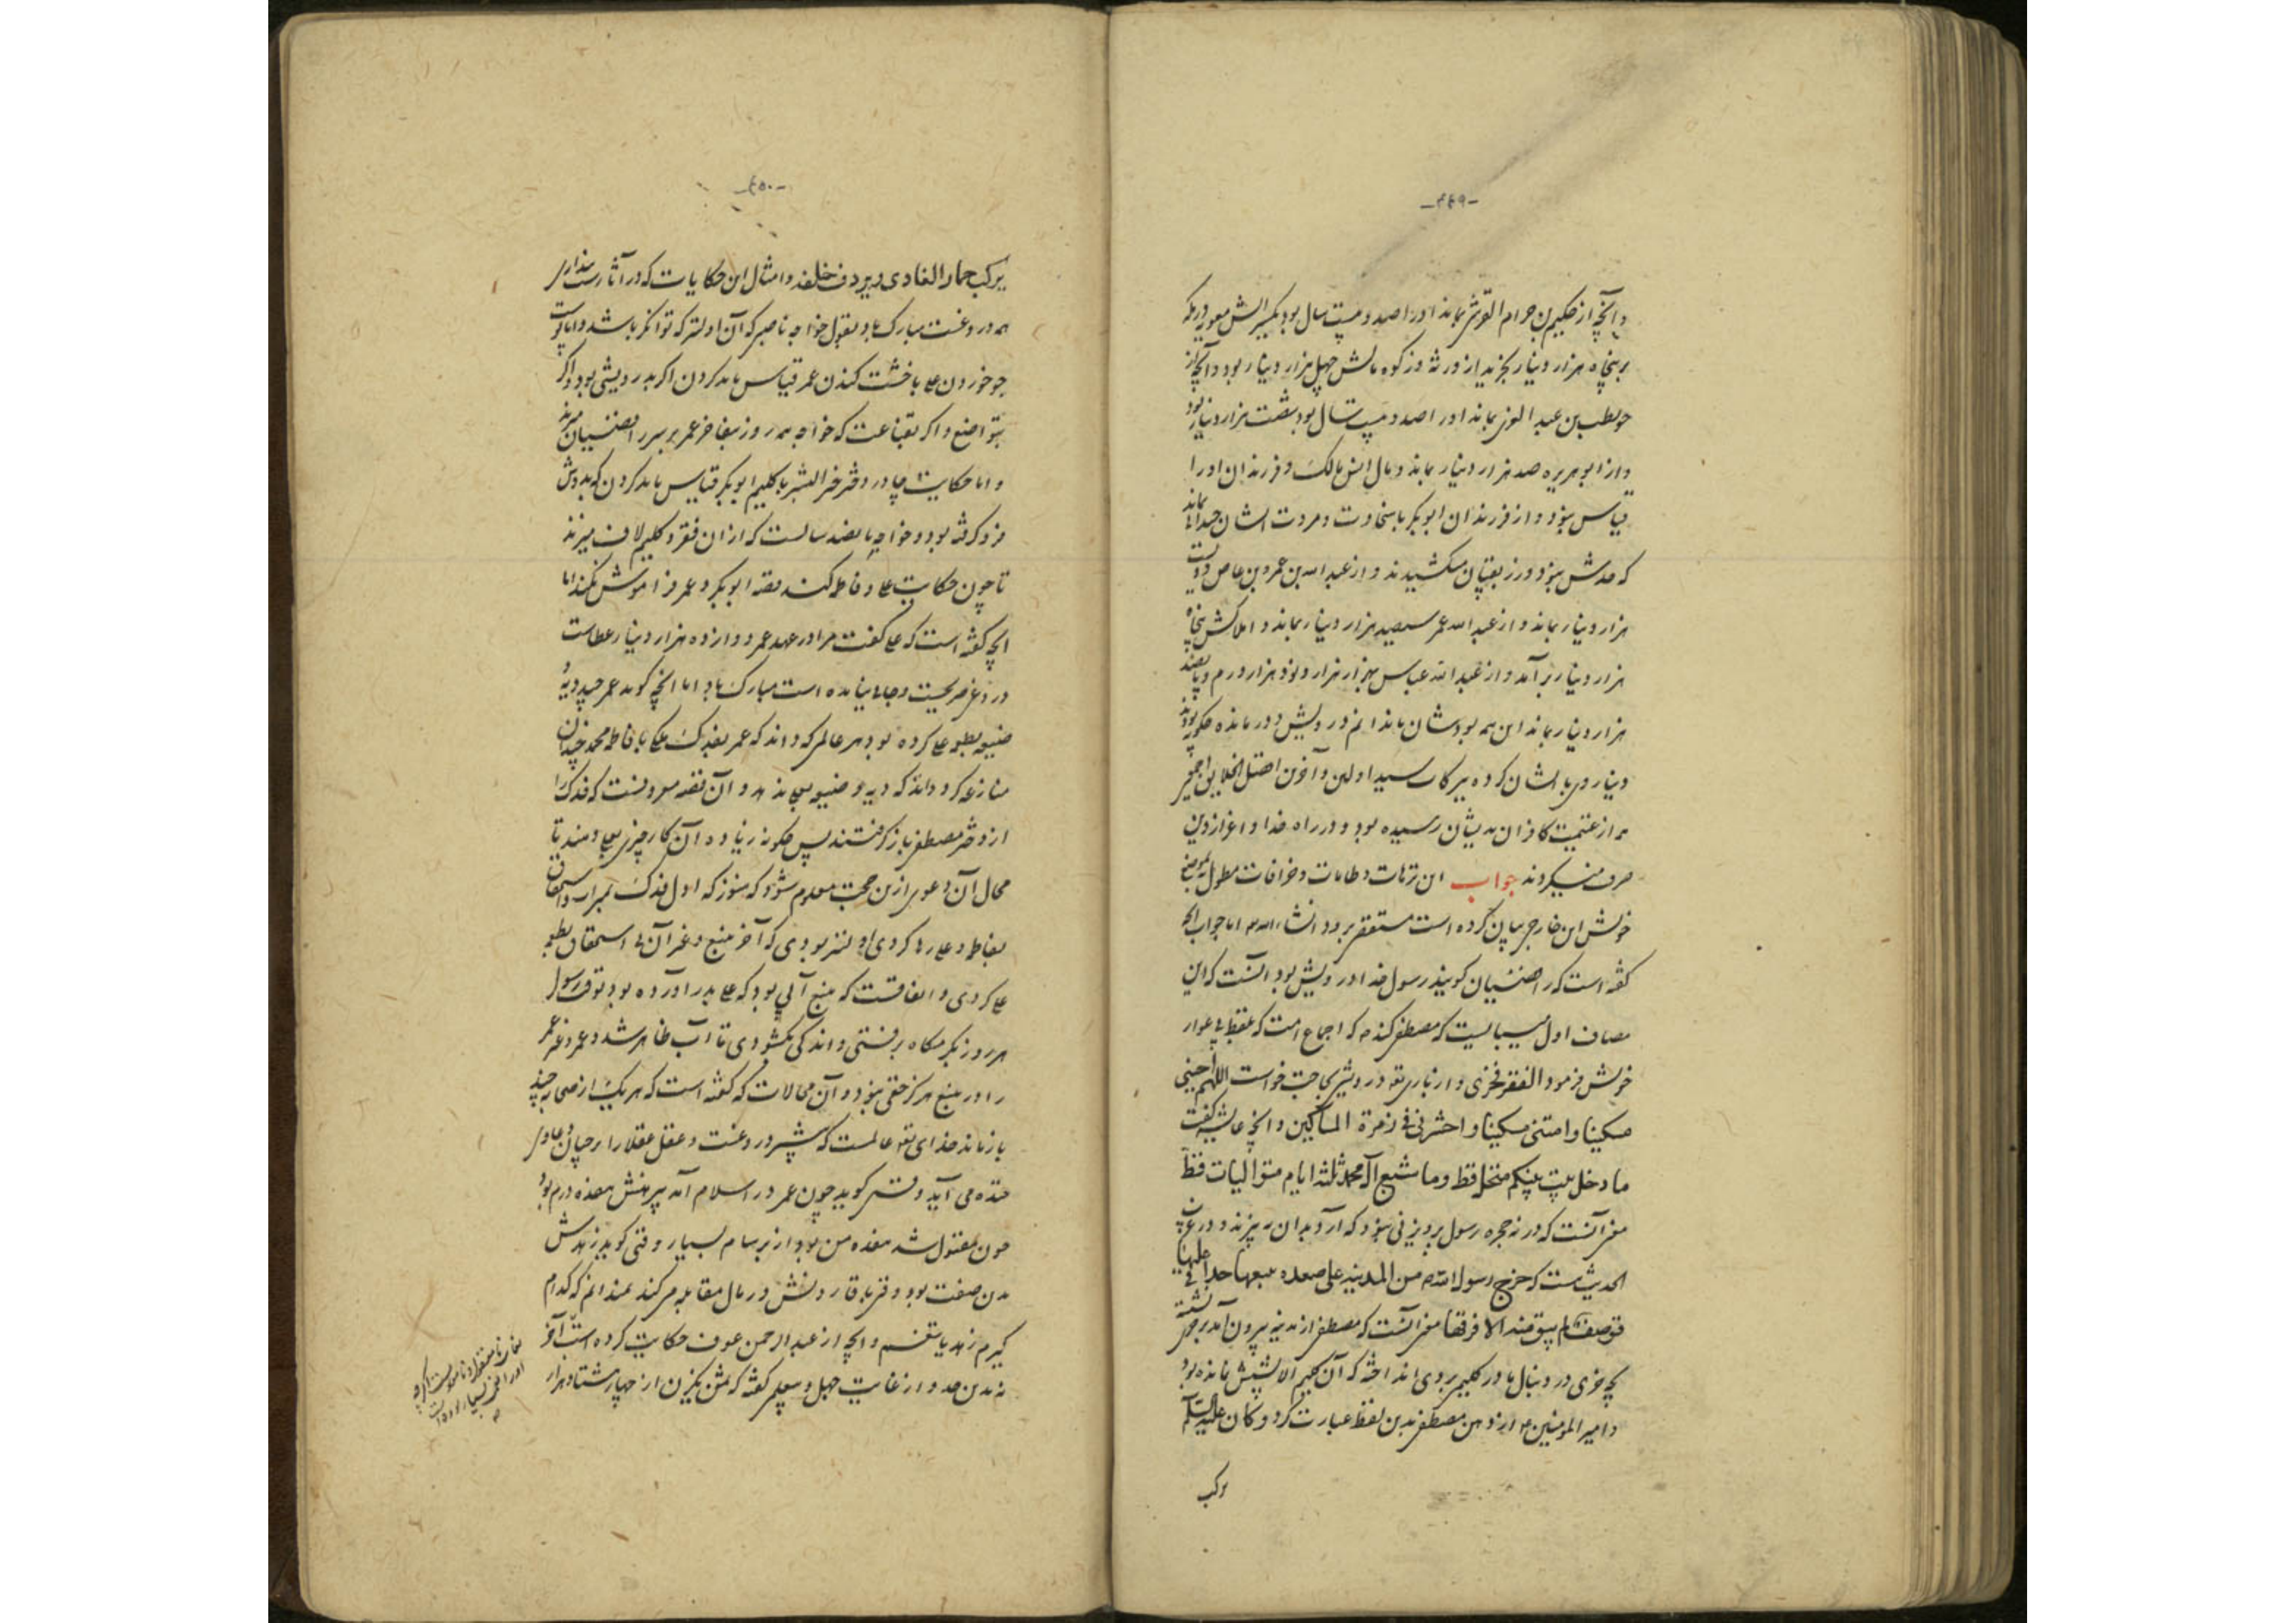 -۴۴۹-
و آنچه از حکیم بن حرام القرشی بماند او را صد و بیست سال بود یکسر الش معویه در مکه
بر پنجاه هزار دینار بخرید از ورثه و زکوه مالش چهل هزار دینار بود و آنچه از
حویطب بن عبد العزی بماند او را صد و بیست سال بود شصت هزار دینار بود
و از ابو هریره صد هزار دینار بماند و مال انس مالک و فرزندان او را
قیاس نبود و از فرزندان ابوبکر با سخاوت و مروت ایشان چندان بماند
که حدش نبود و زر بقپان میکشیدند و از عبد الله بن عمرو بن عاص دویست
هزار دینار بماند و از عبد الله عمر سیصد هزار دینار بماند و املاکش پنجاه
هزار دینار برآمد و از عبد الله عباس هزار هزار و نود هزار درم و پانصد
هزار دینار بماند این همه بودشان ندانم درویش و درمانده چگونه بودند
دینار و مال ایشان کرده ببرکات سید اولین و آخرین افضل الخلایق اجمعین
همه از غنیمت کافران بدیشان رسیده بود و در راه خدا و اعزاز دین
صرف میکردند جواب این ترهات و طامات و خرافات مطول که بموضع
خویش این خارجی بیان کرده است مستقصی برود انشاء الله اما جواب آنچه
گفته است که رافضیان گویند رسول خدا درویش بود آنست که این
مصاف اول میبایست که مصطفی کند که اجماع امت که بلفظ بی عوار
خویش فرمود الفقر فخری و از باری تعالی درویشی بحاجت خواست اللهم احینی
مسکینا و امتنی مسکینا و احشرنی فی زمرة المساکین و آنچه عایشه گفت
ما دخل بیت نبیکم منخل قط و ما شبع آل محمد ثلثة ایام متوالیات قط
معنی آنست که در حجره رسول پرویزنی نبود که آرد بدان بپزند و در
الحدیث است که خرج رسول الله من المدینة علی صعده یتبعها حذاقی علیها
قوصف لم یبق منه الا قرقرها معنی آنست که مصطفی از مدینه بیرون آمد بر خری نشسته
بچه خری در دنبال مادر گلیمی بر وی انداخته که آن گلیم الا پشش نمانده بود
و امیر المؤمنین از دهن مصطفی بدین لفظ عبارت کرد و کان علیه السلم
یرکب
-۴۵۰-
یرکب حمار العادی و یردف خلفه و امثال این حکایات که در آثار رست بدار
همه دروغست مبارک باد بقول خواجه ناصبی که آن اولیتر که توانگر باشد و اما
جو خوردن علی با خشت کندن عمر قیاس باید کردن اگر بدرویشی بود و اگر
بتواضع و اگر بقناعت که خواجه همه روز بفاخر عمر بر سر رافضیان میزند
و اما حکایت چادر دختر خیر البشر با گلیم ابوبکر قیاس باید کردن که بدوش
فرو گرفته بود و خواجه پانصد سالست که از آن فقر و گلیم لاف میزند
تا چون حکایت علی و فاطمه کند قصه ابوبکر و عمر فراموش نکند اما
آنچه گفته است که علی گفت مرا در عهد عمر دوازده هزار دینار عطاست
دروغ صریحست و جائی نیامده است مبارک باد اما آنچه گوید عمر چند دیه و
ضیعه بطعمه علی کرده بود هر عالمی که داند که عمر بفدک علی با فاطمه محمد چندان
منازعه کرد داند که دیه و ضیعه بعلی ندهد و آن قصه معروفست که فدک را
از دختر مصطفی باز گرفتند پس چگونه زیاده آن کار چیزی بعلی دهند تا
محال آن دعوی ازین حجت معلوم شود که هنوز که اول فدک بمیراث و استحقاق
بفاطمه و علی رها کردی اولیتر بودی که آخر ینبع و غیر آن بی استحقاق بطعمه
علی کردی و اتفاقست که ینبع آبی بود که علی بدر آورده بود بقوت رسول
هر روز یکره بکاه برفتی و اندکی بگشودی تا آب ظاهر شد و عمر و غیر عمر
را در ینبع هرگز حقی نبود و آن محالات که گفته است که هر یک از صحابه چند
باز ماند خدای تعالی عالمست که بیشتر دروغست و عقل عقلا را بر چنان دعاوی
خنده می آید وقتی گوید چون عمر در اسلام آمد پیرهنش هفده درم بود
چون مقتول شد هفده من بود از بر سام بسیار وقتی گوید زهدش
بدین صفت بود وقتی با قارونش در مال مقابله میکند نمیدانم که کدام
گیرم زهد یا تنعم و آنچه از عبد الرحمن عوف حکایت کرده است آخر
نه بدین حد و از غایت جهل و سهلی گفته که ثمن یک زن از چهار هشتاد هزار